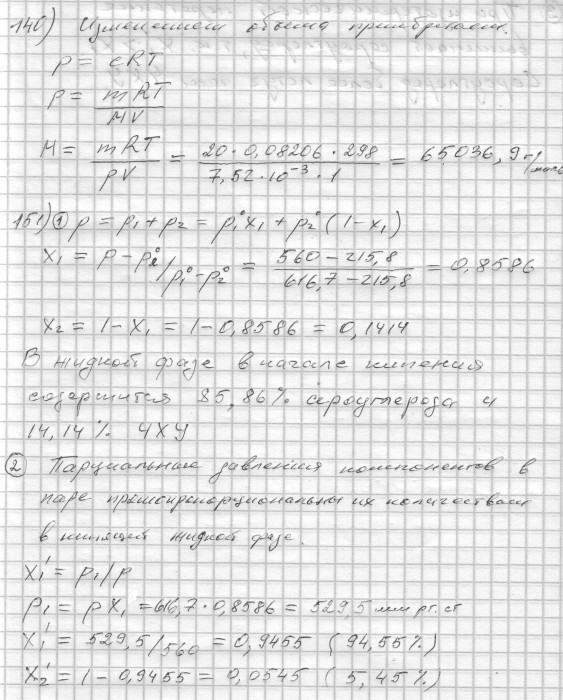 146) Изменением объема пренебрегаем.
p = cRT
p = mRT / MV
M = mRT / pV = 20 · 0,08206 · 298 / 7,52 · 10⁻³ · 1 = 65036,9 г/моль
151) ① p = p₁ + p₂ = p₁° x₁ + p₂° (1 - x₁)
x₁ = p - p₂° / p₁° - p₂° = 560 - 215,8 / 616,7 - 215,8 = 0,8586
x₂ = 1 - x₁ = 1 - 0,8586 = 0,1414
В жидкой фазе в начале кипения
содержится 85,86% сероуглерода и
14,14% ЧХУ
② Парциальные давления компонентов в
паре прямопропорциональны их количествам
в кипящей жидкой фазе.
x₁' = p₁/p
p₁ = p x₁ = 616,7 · 0,8586 = 529,5 мм рт. ст
x₁' = 529,5/560 = 0,9455 (94,55%)
x₂' = 1 - 0,9455 = 0,0545 (5,45%)